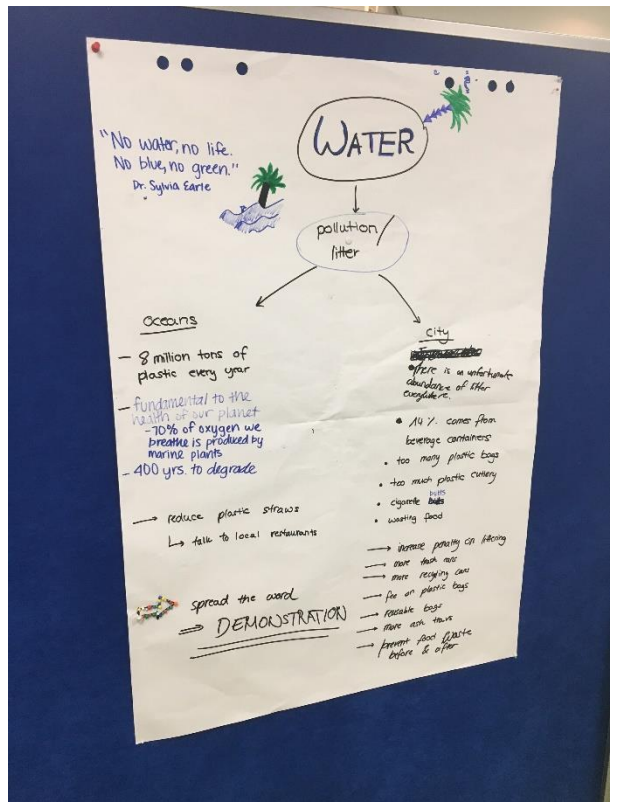 WATER
"No water, no life.
No blue, no green."
Dr. Sylvia Earle
pollution/
litter
oceans
- 8 million tons of
plastic every year
- fundamental to the
health of our planet
-70% of oxygen we
breathe is produced by
marine plants
- 400 yrs. to degrade
→ reduce plastic straws
↳ talk to local restaurants
spread the word
⇒ DEMONSTRATION
city
• There is an unfortunate
abundance of litter
everywhere.
• 14% comes from
beverage containers
• too many plastic bags
• too much plastic cutlery
• cigarette butts
• wasting food
→ increase penalty on littering
→ more trash cans
→ more recycling cans
→ fee on plastic bags
→ reusable bags
→ more ash trays
→ prevent food waste
before & after